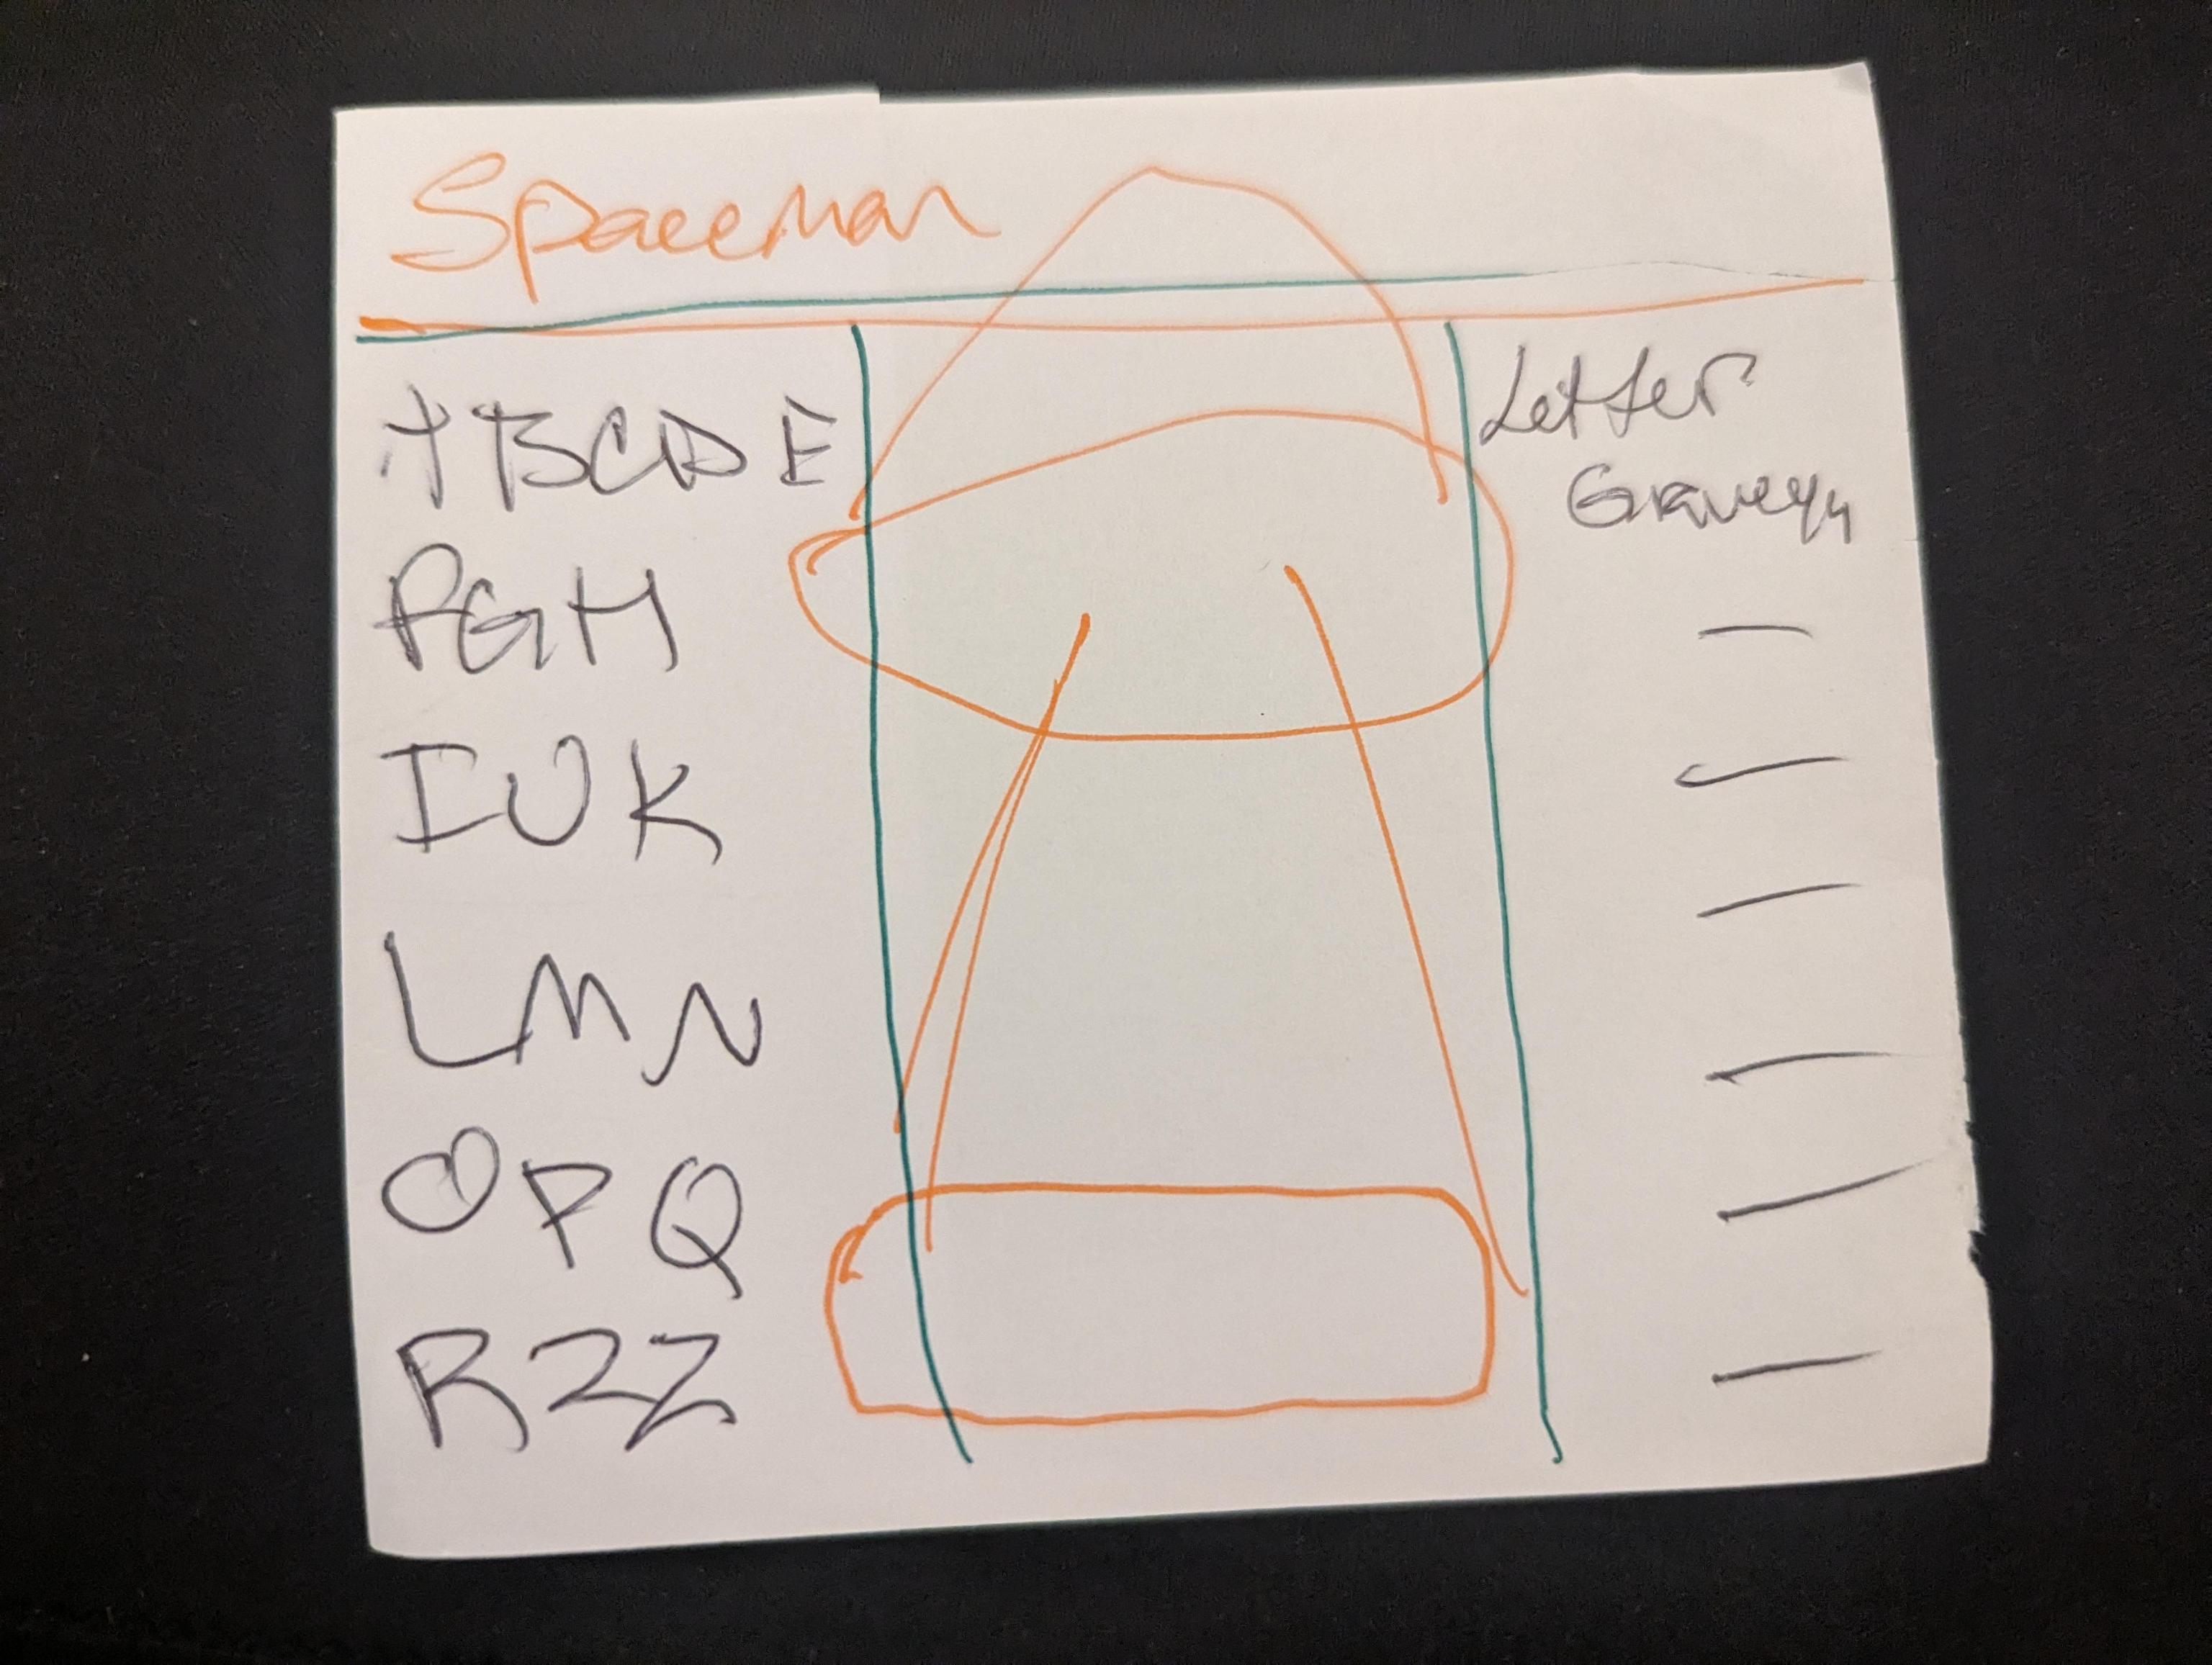 Spaceman
A B C D E
F G H
I J K
L M N
O P Q
R Z Z
Letter